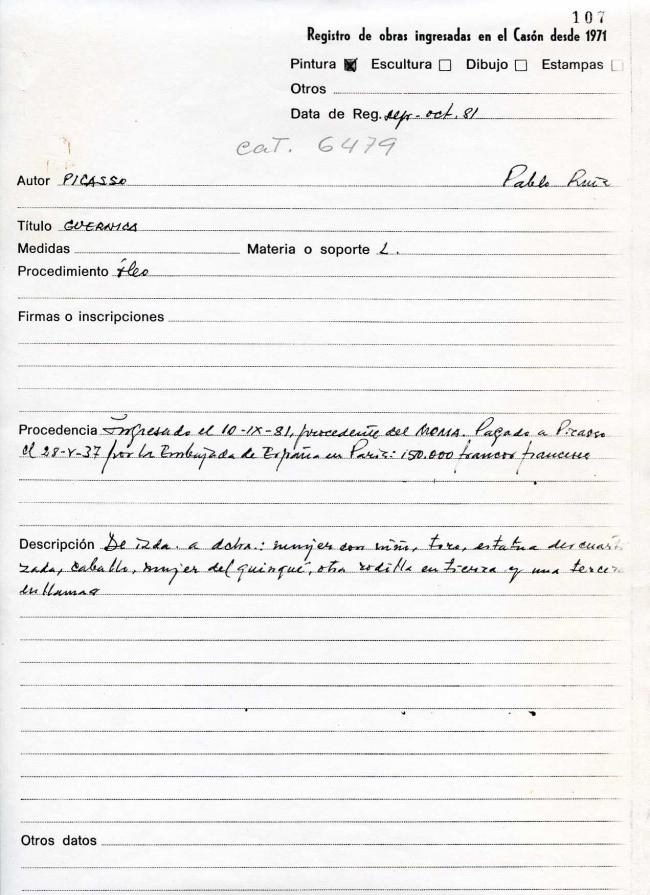 107
Registro de obras ingresadas en el Casón desde 1971
Pintura Escultura Dibujo Estampas
Otros
Data de Reg. sep-oct. 81
cat. 6479
Autor PICASSO Pablo Ruiz
Título GUERNICA
Medidas Materia o soporte L.
Procedimiento óleo
Firmas o inscripciones
Procedencia Ingresado el 10-IX-81, procedente del MOMA. Pagado a Picasso
el 28-V-37 por la Embajada de España en París: 150.000 francos franceses
Descripción De izda. a dcha.: mujer con niño, toro, estatua descuarti
zada, caballo, mujer del quinqué, otra rodilla en tierra y una tercera
en llamas
Otros datos